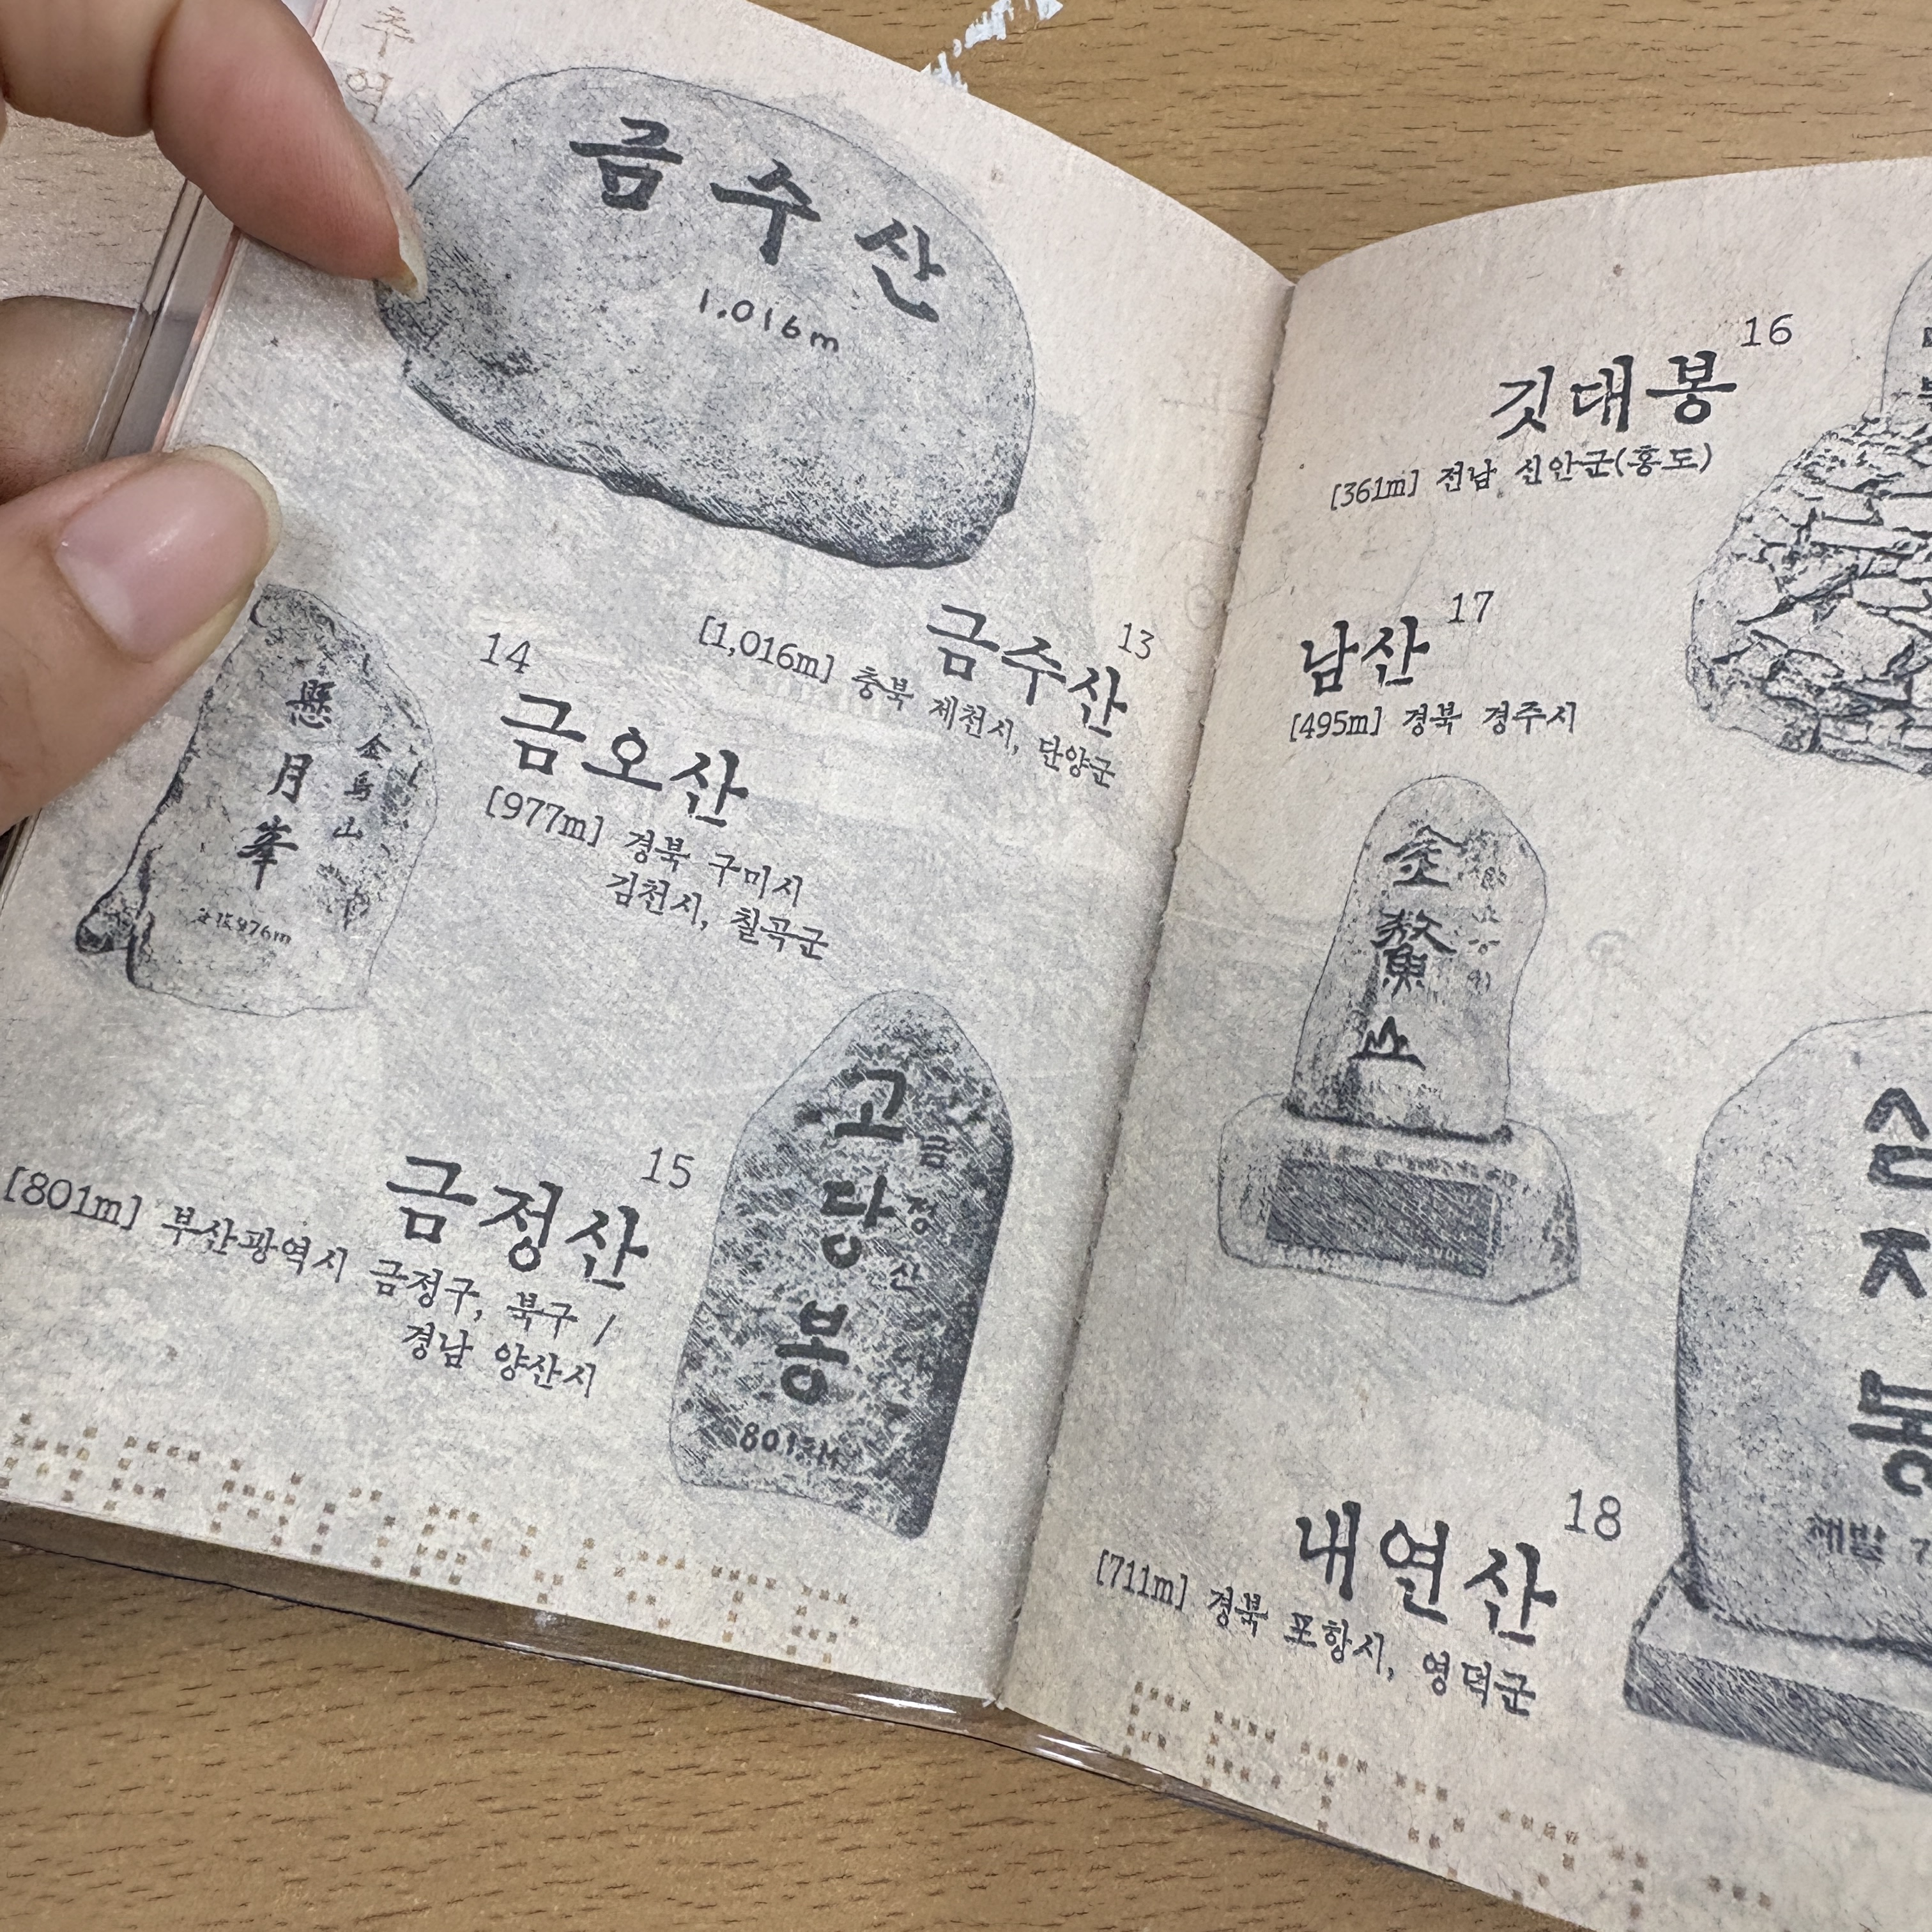 금수산
1,016m
13
금수산
[1,016m] 충북 제천시, 단양군
懸月峯
金烏山
976m
14
금오산
[977m] 경북 구미시
김천시, 칠곡군
15
금정산
[801m] 부산광역시 금정구, 북구 /
경남 양산시
고당봉
금정산
16
깃대봉
[361m] 전남 신안군(홍도)
17
남산
[495m] 경북 경주시
金鰲山
18
내연산
[711m] 경북 포항시, 영덕군
삼지봉
해발